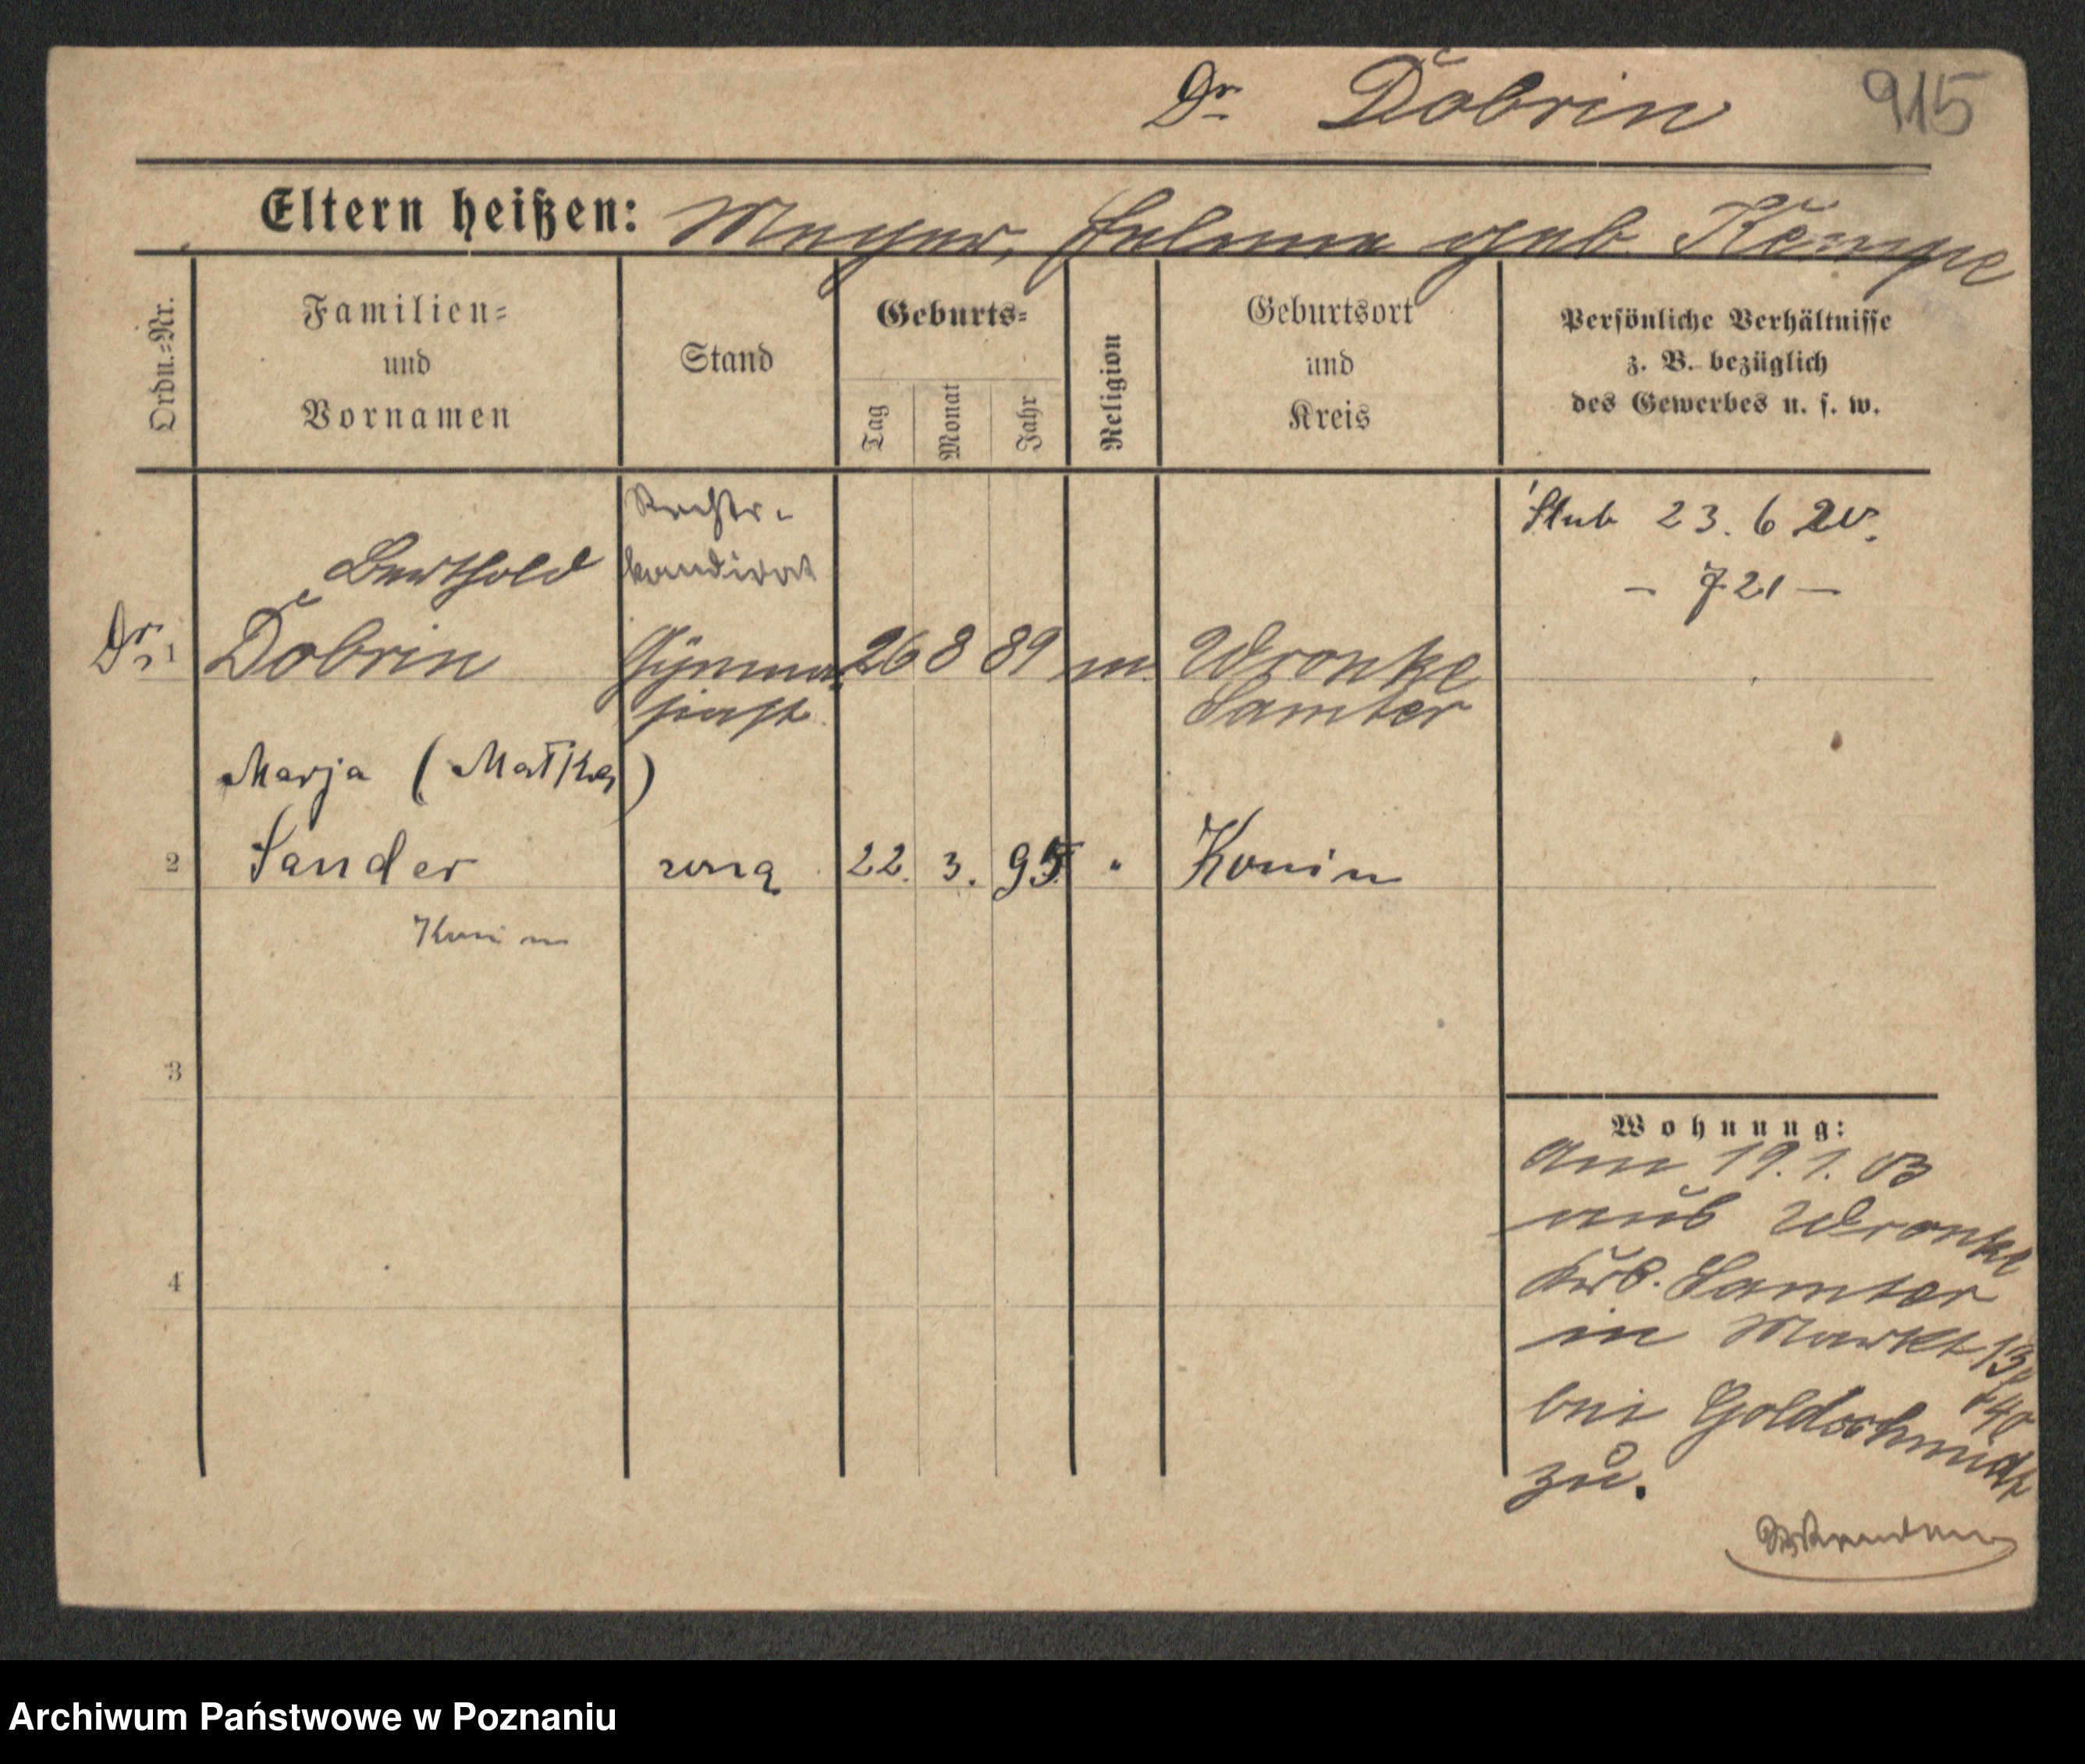 Dr Dobrin 915
Eltern heißen: Meyer, Salomea geb. Kempe
Ordn.=Nr.
Familien=
und
Vornamen
Stand
Geburts=
Tag
Monat
Jahr
Religion
Geburtsort
und
Kreis
Persönliche Verhältnisse
z. B. bezüglich
des Gewerbes u. s. w.
Rechts-
kandidat
Berthold
Dr. 1 Dobrin Gymna- 26 8 89 m. Wronke
siast Samter
Ślub 23. 6 20.
- 721 -
Marja (Matka)
2 Sander żona 22. 3. 95 " Konin
Konin
3
4
Wohnung:
Am 19. 1. 03
aus Wronke
Krs. Samter
in Markt 13/
140
bei Goldschmidt
zu.
Archiwum Państwowe w Poznaniu